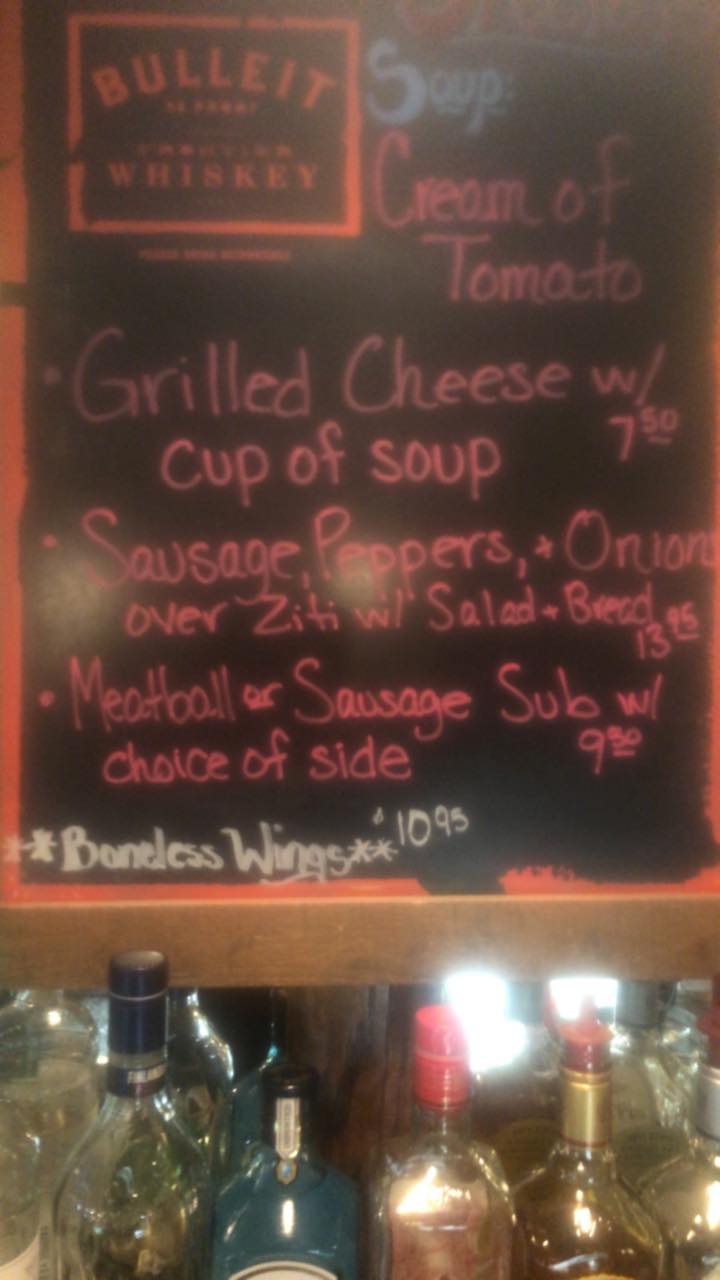 BULLEIT
FRONTIER
WHISKEY
Soup:
Cream of
Tomato
• Grilled Cheese w/
cup of soup 7 50
• Sausage, Peppers, + Onion
over Ziti w/ Salad + Bread
13 95
• Meatball or Sausage Sub w/
choice of side 9 50
**Boneless Wings** $10 95